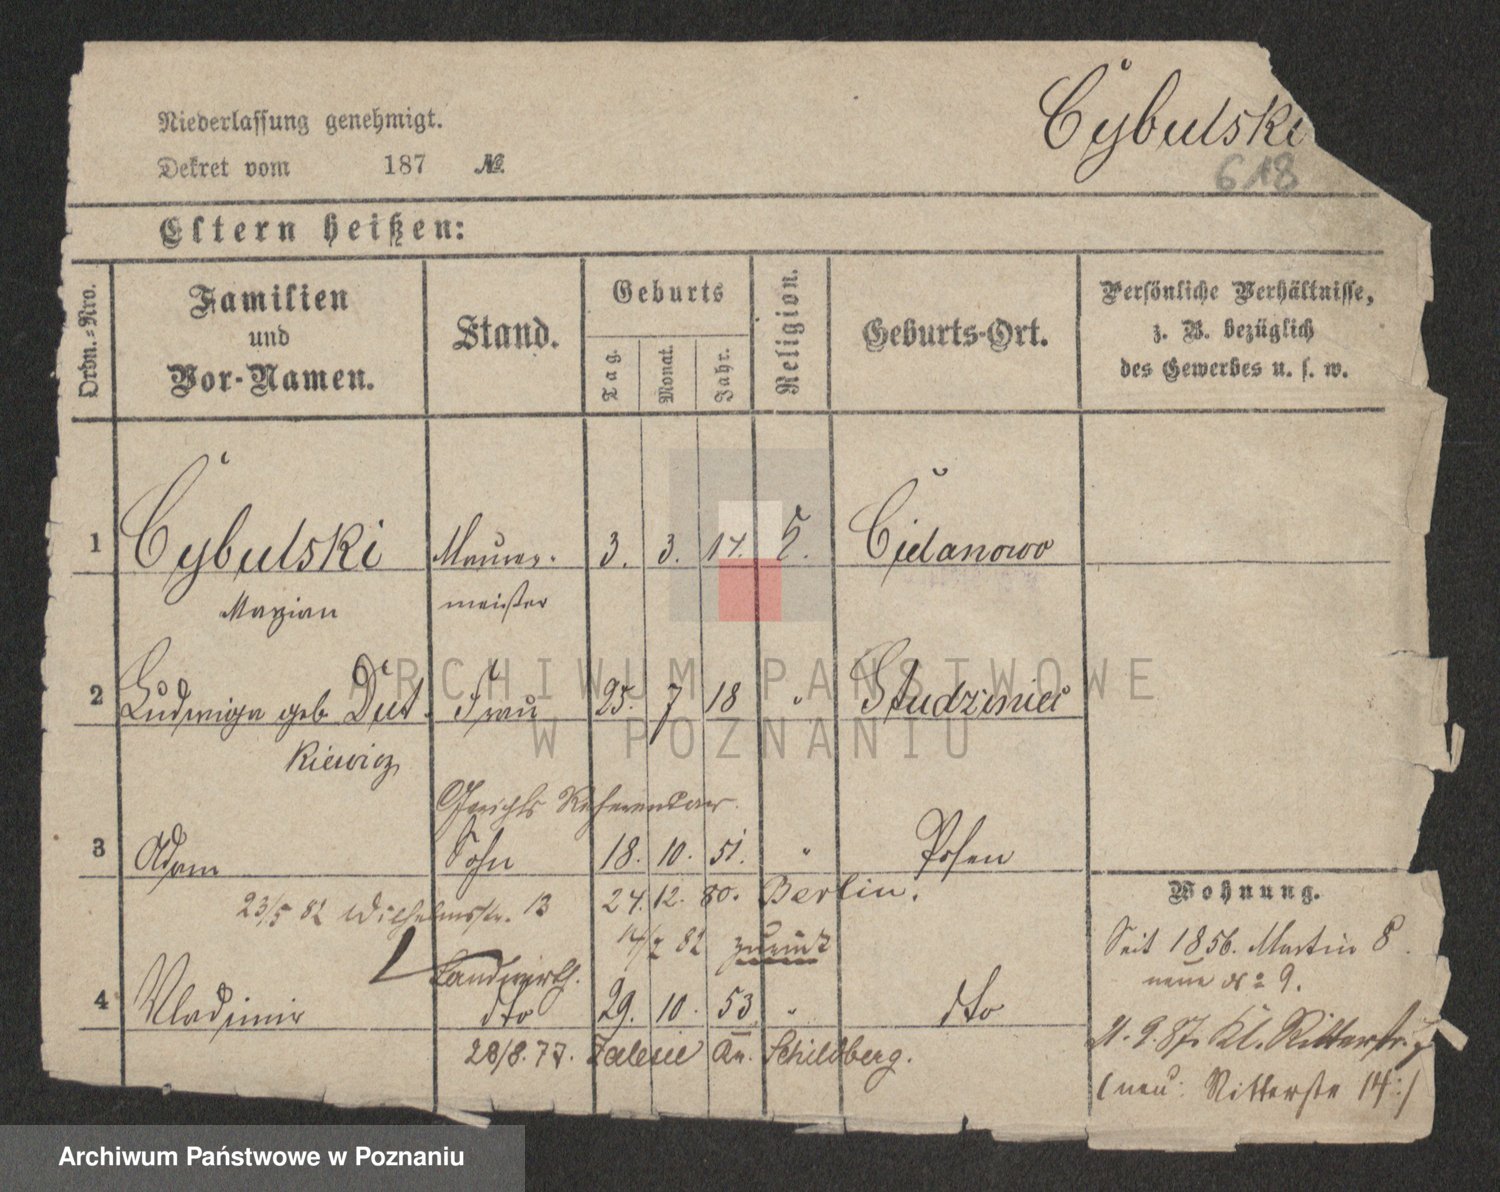 Niederlassung genehmigt.
Dekret vom 187 №
Cybulski
618
Eltern heißen:
Ordn.-Nro.
Familien
und
Vor-Namen.
Stand.
Geburts
Tag.
Monat.
Jahr.
Religion.
Geburts-Ort.
Persönliche Verhältnisse,
z. B. bezüglich
des Gewerbes u. s. w.
1 Cybulski Maurer- 3. 3. 17.
Maryian meister
2 Ludwiga geb Dut- Frau 25. 7 18 " Studziniec
kiewicz
Gerichts Referendar.
3 Adam Sohn 18. 10. 51. " Posen
23/5 82 Wilhelmstr. 13 24. 12. 80. Berlin.
82 zurück
Landwirth.
4 Vladimir dto 29. 10. 53 " dto
28/8. 77. Zalesie Kr. Schildberg.
Wohnung.
Seit 1856. Martin 8.
neue No 9.
21. 9. 87. Kl. Ritterstr. 7
(neu: Ritterstr 14:)
ARCHIWUM PAŃSTWOWE
W POZNANIU
Archiwum Państwowe w Poznaniu